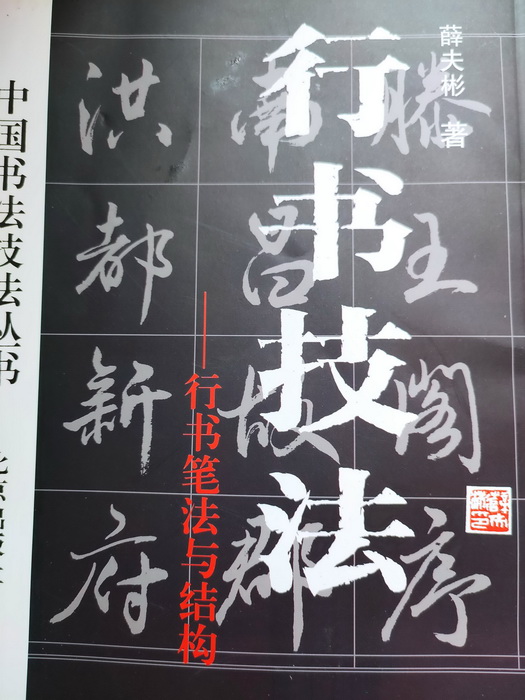 薛夫彬 著
行书技法
——行书笔法与结构
滕王阁序
南昌故郡
洪都新府
中国书法技法丛书